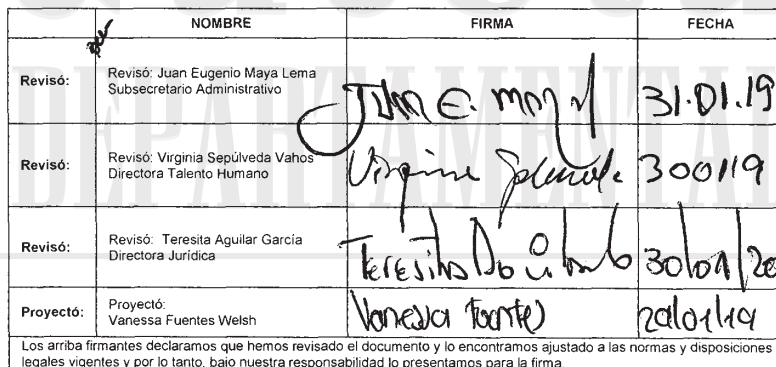 NOMBRE FIRMA FECHA
Revisó: Revisó: Juan Eugenio Maya Lema
Subsecretario Administrativo
JUAN E. MAYA 31.01.19
Revisó: Revisó: Virginia Sepúlveda Vahos
Directora Talento Humano
Virginia Sepúlveda 300119
Revisó: Revisó: Teresita Aguilar García
Directora Jurídica
Teresita Aguilar 30/01/20
Proyectó: Proyectó:
Vanessa Fuentes Welsh
Vanessa Fuentes 29/01/19
Los arriba firmantes declaramos que hemos revisado el documento y lo encontramos ajustado a las normas y disposiciones
legales vigentes y por lo tanto, bajo nuestra responsabilidad lo presentamos para la firma.
DEPARTAMENTAL